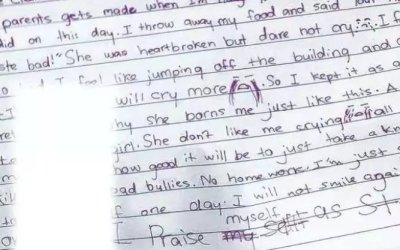 parents gets made when I'm
did on this day. I throw away my food and said
ste bad!" She was heartbroken but dare not cry. If
I feel like jumping off the building and
will cry more. So I kept it as a
hy she barns me just like this. A
girl. She don't like me crying all
how good it will be to just take a kn
bad bullies. No homework. I'm just
f one day. I will not smile agai
I Praise myself as St